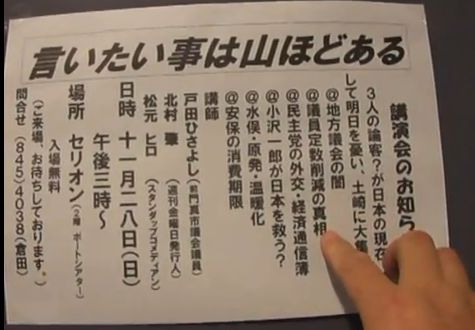 言いたい事は山ほどある
講演会のお知ら
3人の論客?が日本の現在
して明日を憂い、土崎に大集
@地方議会の闇
@議員定数削減の真相
@民主党の外交・経済通信簿
@小沢一郎が日本を救う?
@水俣・原発・温暖化
@安保の消費期限
講師
戸田ひさよし(前門真市議会議員)
北村 肇(週刊金曜日発行人)
松元 ヒロ(スタンダップコメディアン)
日時 十一月二八日(日)
午後三時～
場所 セリオン(2階 ポートシアター)
入場無料
(ご来場、お待ちしております。)
問合せ(845)4038(倉田)